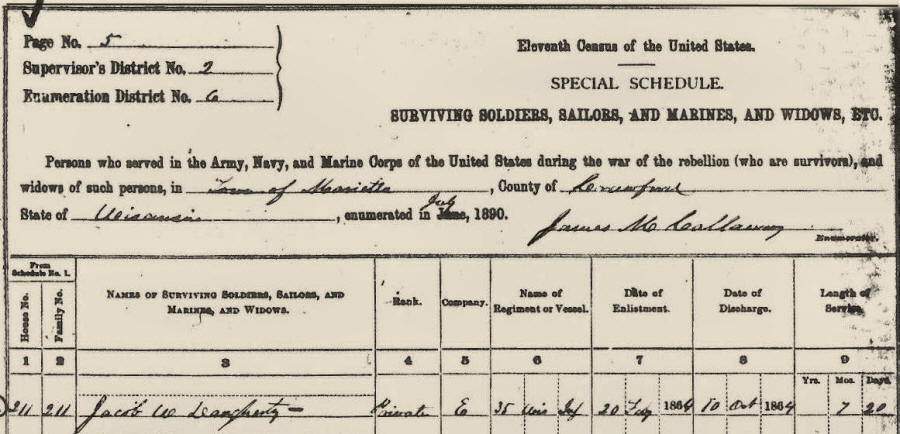 Page No. 5
Supervisor's District No. 2
Enumeration District No. 6
Eleventh Census of the United States.
SPECIAL SCHEDULE.
SURVIVING SOLDIERS, SAILORS, AND MARINES, AND WIDOWS, ETC.
Persons who served in the Army, Navy, and Marine Corps of the United States during the war of the rebellion (who are survivors), and
widows of such persons, in Town of Marietta, County of Crawford
State of Wisconsin, enumerated in July June, 1890.
James M Callaway
Enumerator.
From Schedule No. 1.
House No.
Family No.
NAMES OF SURVIVING SOLDIERS, SAILORS, AND MARINES, AND WIDOWS.
Rank.
Company.
Name of Regiment or Vessel.
Date of Enlistment.
Date of Discharge.
Length of Service.
1 2 3 4 5 6 7 8 9
Yrs. Mos. Days.
211 211 Jacob W Daugherty Private E 35 Wis Inf 20 Feb 1864 10 Oct 1864 7 20